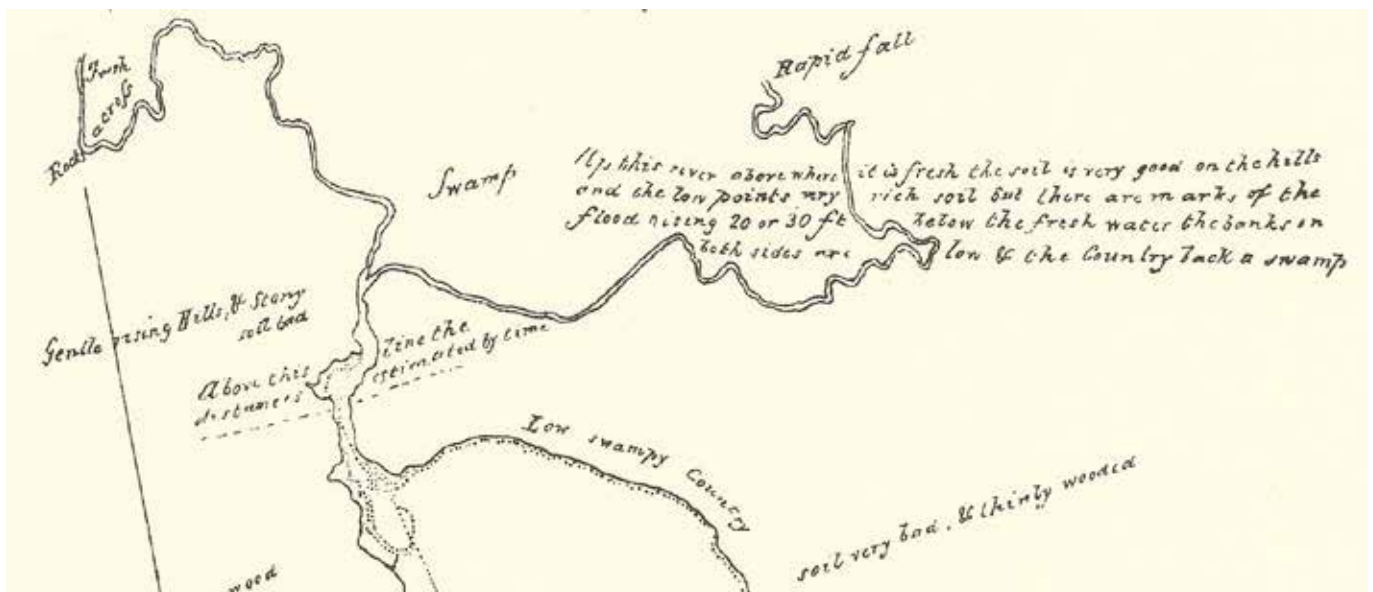 Rapid fall
Fresh
across
Rock
Swamp
Up this river above where it is fresh the soil is very good on the hills
and the low points very rich soil but there are marks of the
flood rising 20 or 30 ft below the fresh water the banks on
both sides are low & the Country back a swamp
Gentle rising Hills, & Stony
soil bad
Above this Line the
distances estimated by time
Low swampy Country
soil very bad, & thinly wooded
wood